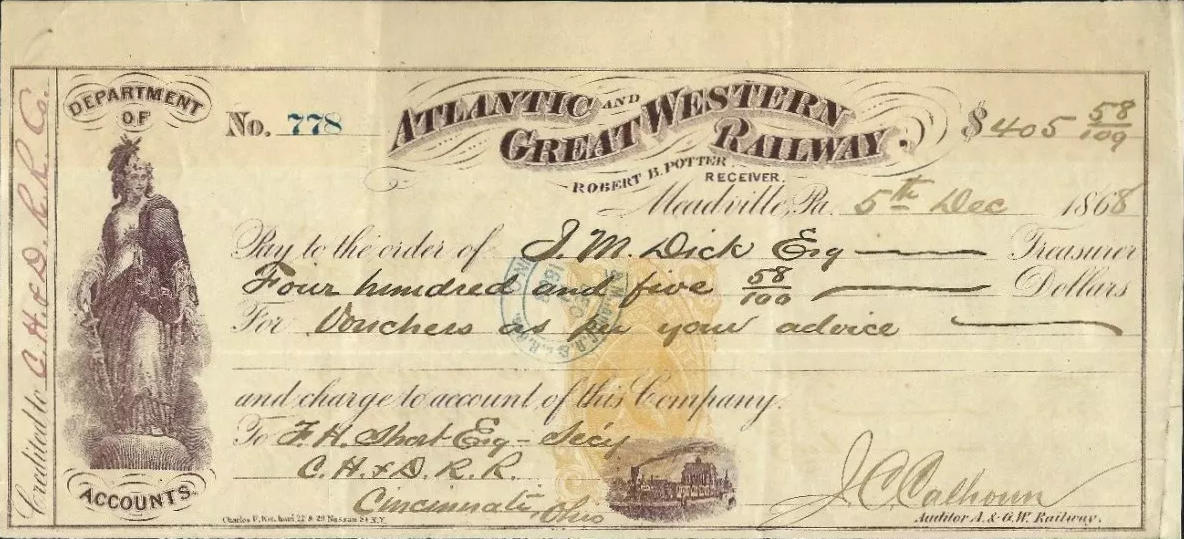 Credited to C. H. & D. R. R. Co.
DEPARTMENT
OF
ACCOUNTS.
No. 778
ATLANTIC AND
GREAT WESTERN
RAILWAY.
$405 58/100
ROBERT B. POTTER
RECEIVER.
Meadville, Pa. 5th Dec 1868
Pay to the order of J. M. Dick Esq Treasurer
Four hundred and five 58/100 Dollars
For Vouchers as per your advice
and charge to account of this Company.
To F. H. Short Esq - Secy
C. H. & D. R. R.
Cincinnati, Ohio
J. C. Calhoun
Auditor A. & G. W. Railway.